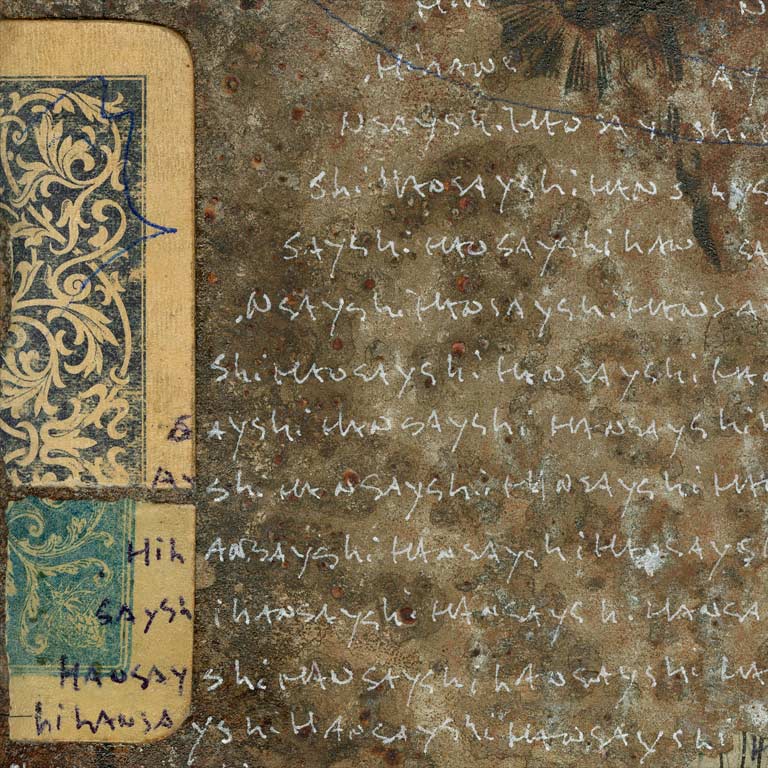 Hi
N
.Hi
AY
NSAYShi.HANSAY Shi
ShiHANSAYShiHANS AYS
SAYShi HANSAYShihAN SA
.NSAYShiHANSAYShi.HANSA
ShiHANSAYShi HANSAYShiHAN
SAYShi HANSAYShi HANSAYShi
AYShi HANSAYShi HANSAYShi HA
Hih ANSAYShiHANSAYShiHANSAYS
SAYShihANSAYShi HANSAYShi.HANSA
HANSAYShi HANSAYShihANSAYShi HA
hihANSAYShiHANSAYShi HANSAYShi